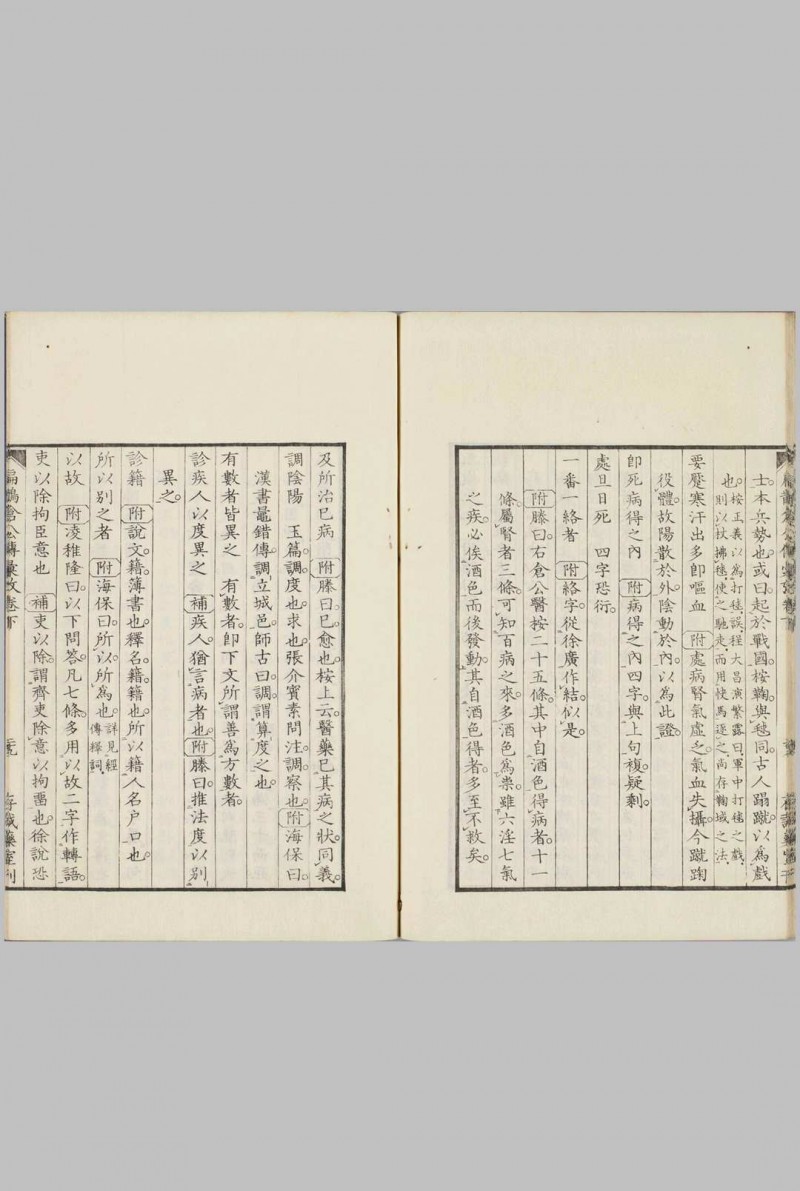 士本兵勢也或曰起於戰國桉鞠與毬同古人蹋蹴以爲戲
也桉正義以爲打毬誤程大昌演繁露曰軍中打毬之戲
則以杖拂毬使之馳走而用快馬逐之尚存鞠域之法
要蹷寒汗出多卽嘔血 附處病腎氣虛之氣血失攝今蹴踘
役體故陽散於外陰動於內以爲此證
卽死病得之內 附病得之內四字與上句複疑剩
處旦日死 四字恐衍
一番一絡者 附絡字從徐廣作結似是
附滕曰右倉公醫桉二十五條其中自酒色得病者十一
條屬腎者三條可知百病之來多酒色爲祟雖六淫七氣
之疾必俟酒色而後發動其自酒色得者多至不救矣
及所治已病 附滕曰已愈也桉上云醫藥已其病之狀同義
調陰陽 玉篇調度也求也張介賓素問注調察也附海保曰
漢書鼂錯傳調立城邑師古曰調謂算度之也
有數者皆異之 有數者卽下文所謂善爲方數者
診疾人以度異之 補疾人猶言病者也附滕曰推法度以別
異之
診籍 附說文籍薄書也釋名籍籍也所以籍人名戶口也
所以別之者 附海保曰所以所爲也詳見經
傳釋詞
以故 附凌稚隆曰以下問答凡七條多用以故二字作轉語
吏以除拘臣意也 補吏以除謂齊吏除意以拘畱也徐說恐
扁鵲倉公傳彙攷卷下 存誠藥室刊